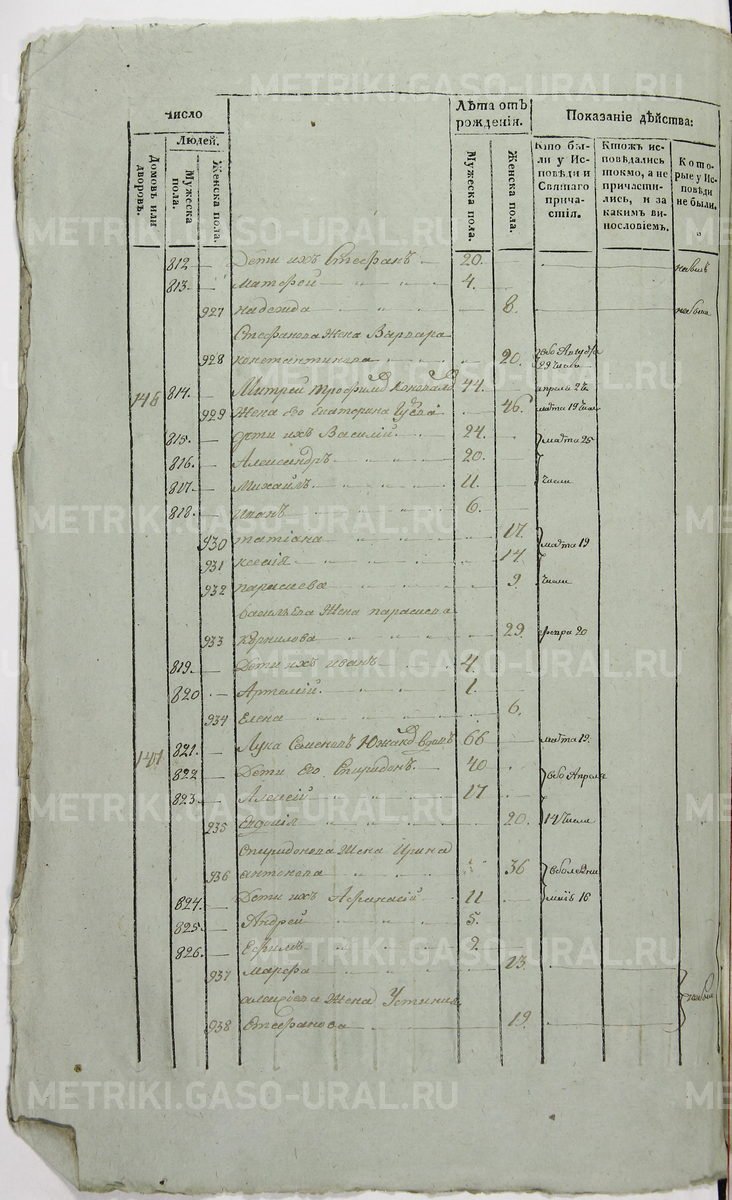 METRIKI.GASO-URAL.RU
число
Лѣта отъ рожденія.
Показаніе дѣйства:
Людей.
Домовъ или дворовъ.
Мужеска пола.
Женска пола.
Мужеска пола.
Женска пола.
Кто бы-
ли у Ис-
повѣди и
Святаго
прича-
стія.
Ктожъ ис-
повѣдались
токмо, а не
причасти-
лись, и за
какимъ ви-
нословіемъ.
Кото-
рые у Ис-
повѣди
не были.
812 Дети ихъ Стефанъ 20.
813. Матфей 4.
927 надежда 8.
Стефанова Жена Варвара
928 константинова 20. 29 числа
146 814. Митрей Трофимовъ 44. апреля
929 Жена его Екатерина 46. марта 19 числа
815. дети ихъ Василий 24. марта 25
816. Александръ 20.
817. Михаилъ 11. числа
818. иванъ 6.
930 татіана 17. марта 19
931 ксенія 14.
932 парасковa 9. числа
Жена
933 корнилова 29. 20
819. Дети ихъ иванъ 4.
820 Артемій 1.
934 Елена 6.
147 821. Лука Семеновъ 66 марта 19.
822 Дети Его Спиридонъ 40 Апреля
823 Алексей 17
935 20. 14 числа
Спиридонова Жена Ирина
936 антонова 36
824. Дети ихъ Афанасій 11 16
825. Андрей 5.
826. Ефимъ 2
937 Марфа 13.
Жена Устинья
938 Стефанова 19